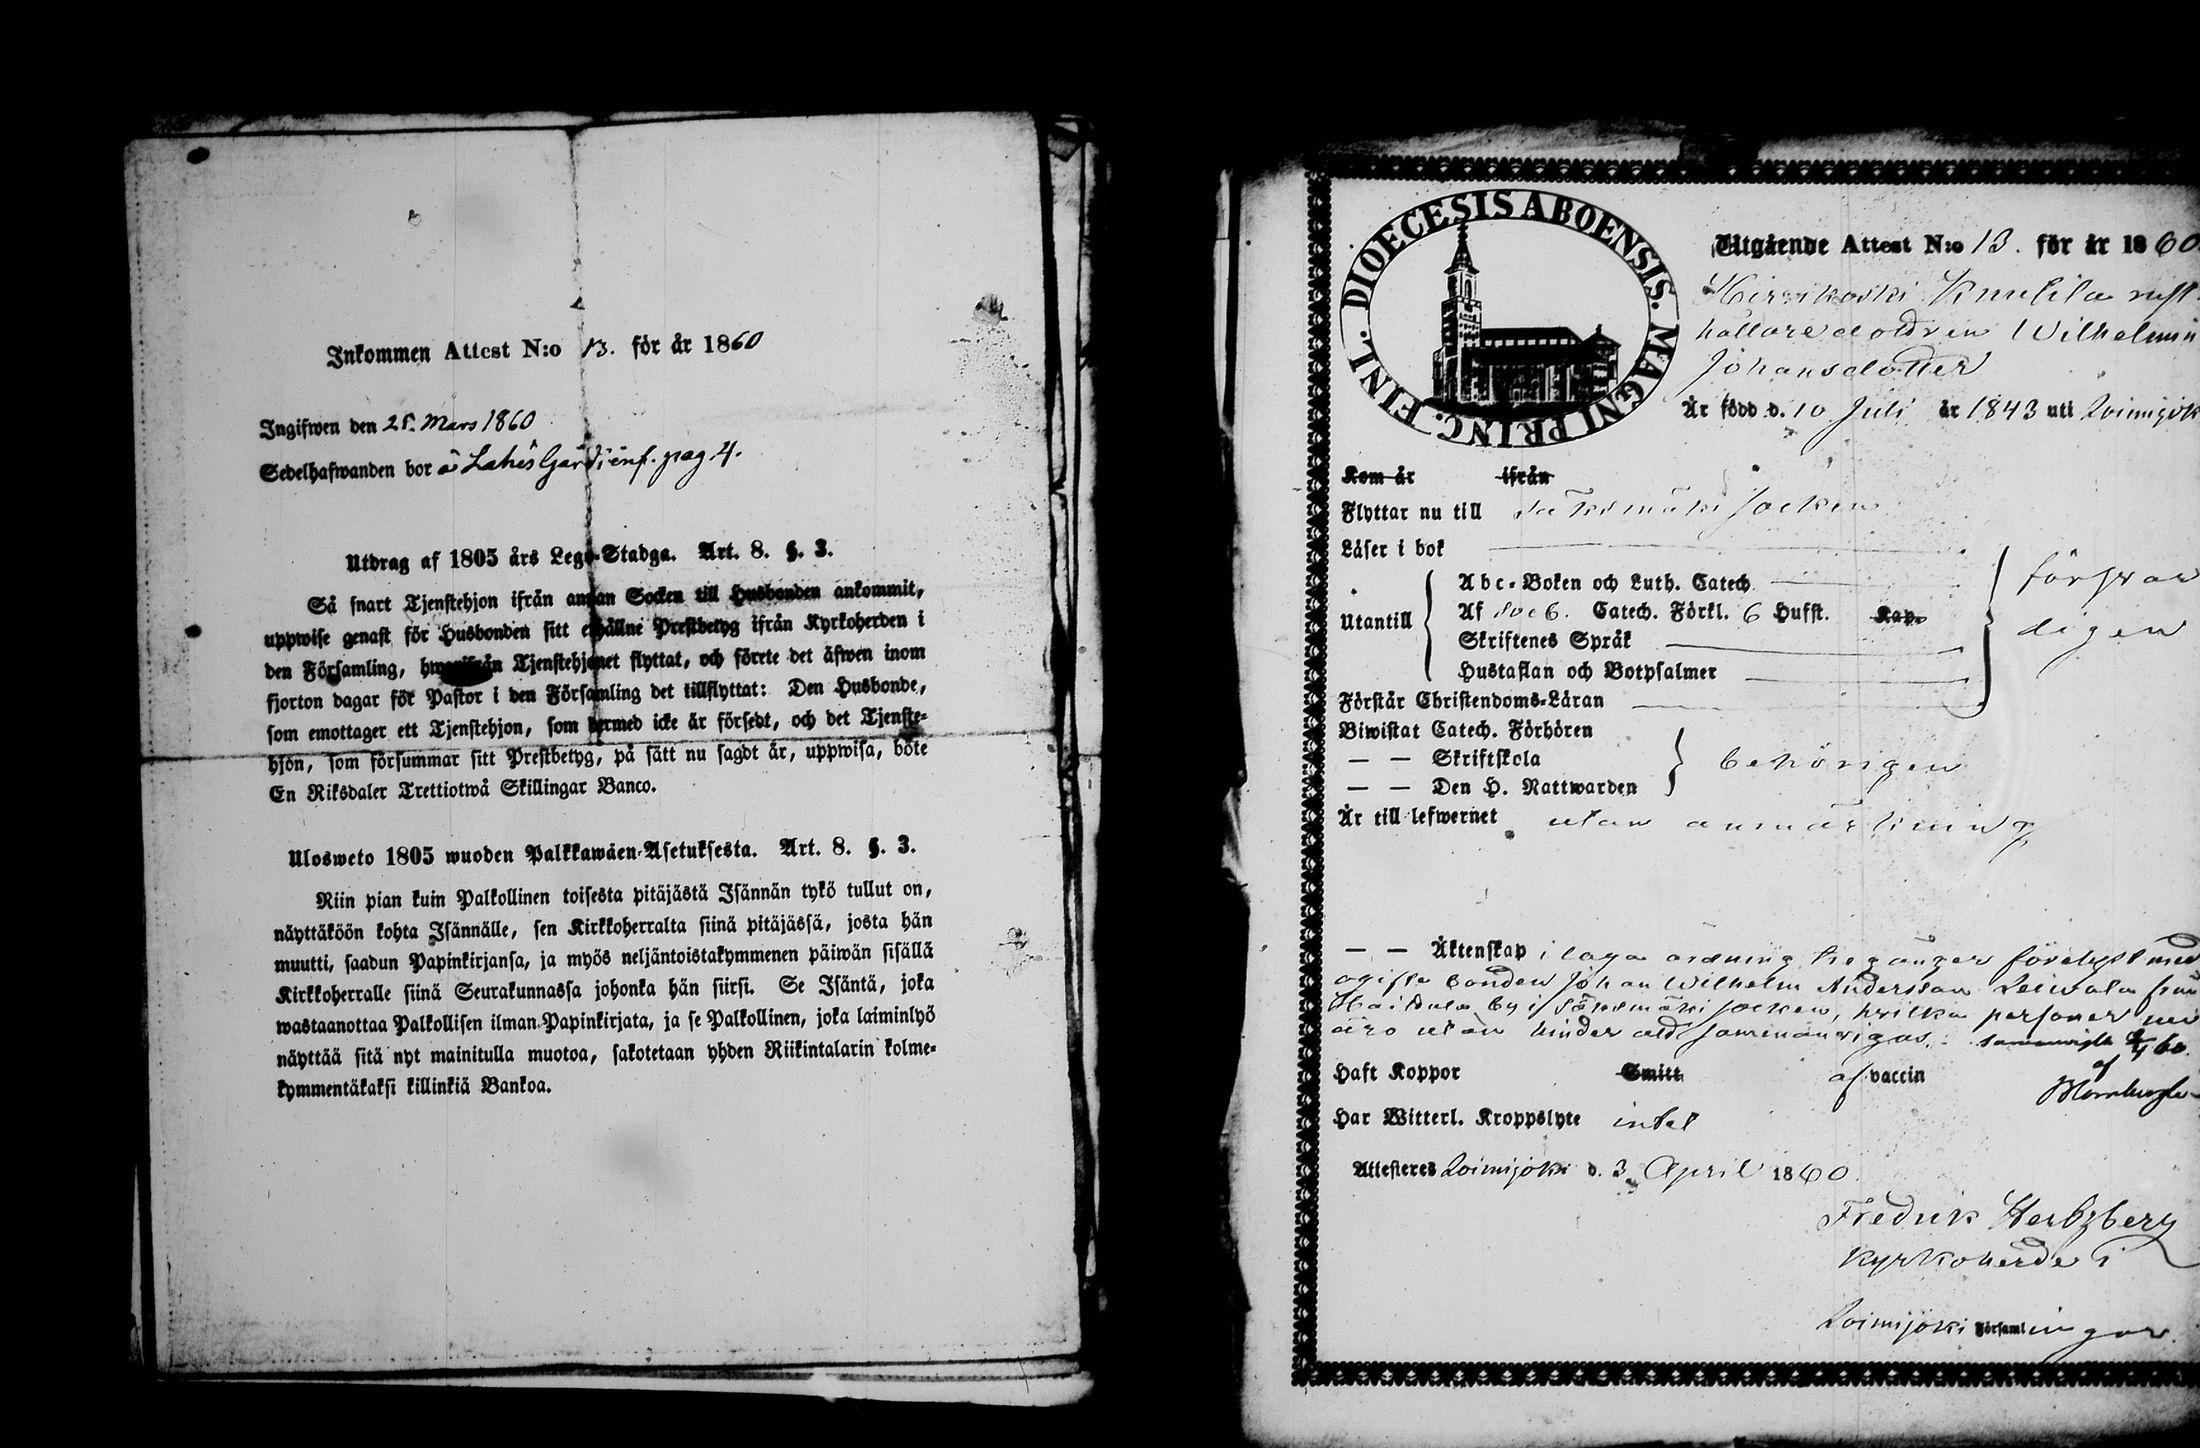 Inkommen Attest N:o 13. för år 1860
Ingifwen den 25. Mars 1860
Sedelhafwanden bor å Lahis Gård inf. pag. 4.
Utdrag af 1805 års Lego-Stadga. Art. 8. §. 3.
Så snart Tjenstehjon ifrån annan Socken till Husbonden ankommit,
uppwise genast för Husbonden sitt erhållne Prestbetyg ifrån Kyrkoherden i
den Församling, hwarifrån Tjenstehjonet flyttat, och förete det äfwen inom
fjorton dagar för Pastor i den Församling det tillflyttat: Den Husbonde,
som emottager ett Tjenstehjon, som hermed icke är försedt, och det Tjenste-
hjon, som försummar sitt Prestbetyg, på sätt nu sagdt är, uppwisa, böte
En Riksdaler Trettiotwå Skillingar Banco.
Ulosweto 1805 wuoden Palkkawäen-Asetuksesta. Art. 8. §. 3.
Niin pian kuin Palkollinen toisesta pitäjästä Isännän tykö tullut on,
näyttäköön kohta Isännälle, sen Kirkkoherralta siinä pitäjässä, josta hän
muutti, saadun Papinkirjansa, ja myös neljäntoistakymmenen päiwän sisällä
Kirkkoherralle siinä Seurakunnassa johonka hän siirsi. Se Isäntä, joka
wastaanottaa Palkollisen ilman Papinkirjata, ja se Palkollinen, joka laiminlyö
näyttää sitä nyt mainitulla muotoa, sakotetaan yhden Riikintalarin kolme-
kymmentäkaksi killinkiä Bankoa.
DIOECESIS ABOENSIS. MAGNI PRINC. FINL.
Utgående Attest N:o 13. för år 1860
Hirsikoski Knutila rust-
hållaredottren Wilhelmin
Johansdotter
Är född d. 10 Juli år 1843 uti Loimijok
Kom år ifrån
Flyttar nu till Sääksmäki socken
Läser i bok
Abc-Boken och Luth. Catech
Utantill Af Catech. Förkl. 6 Hufst. Kap.
Skriftenes Språk
Hustaflan och Botpsalmer
försvar
ligen
Förstår Christendoms-Läran
Biwistat Catech. Förhören
— — Skriftskola
— — Den H. Nattwarden
behörigen
Är till lefwernet utan anmärkning
— — Äktenskap i laga ordning tre gånger förelyst med
ogifte bonden Johan Wilhelm Andersson från
by i Sääksmäki socken, hvilka personer
äro utan hinder att sammanvigas.
Haft Koppor Smitt af vaccin
Har Witterl. Kroppslyte intet
Attesteres Loimijoki d. 3 April 1860.
Fredrik Hertzberg
Kyrkoherde i
Loimijoki Församlingar.